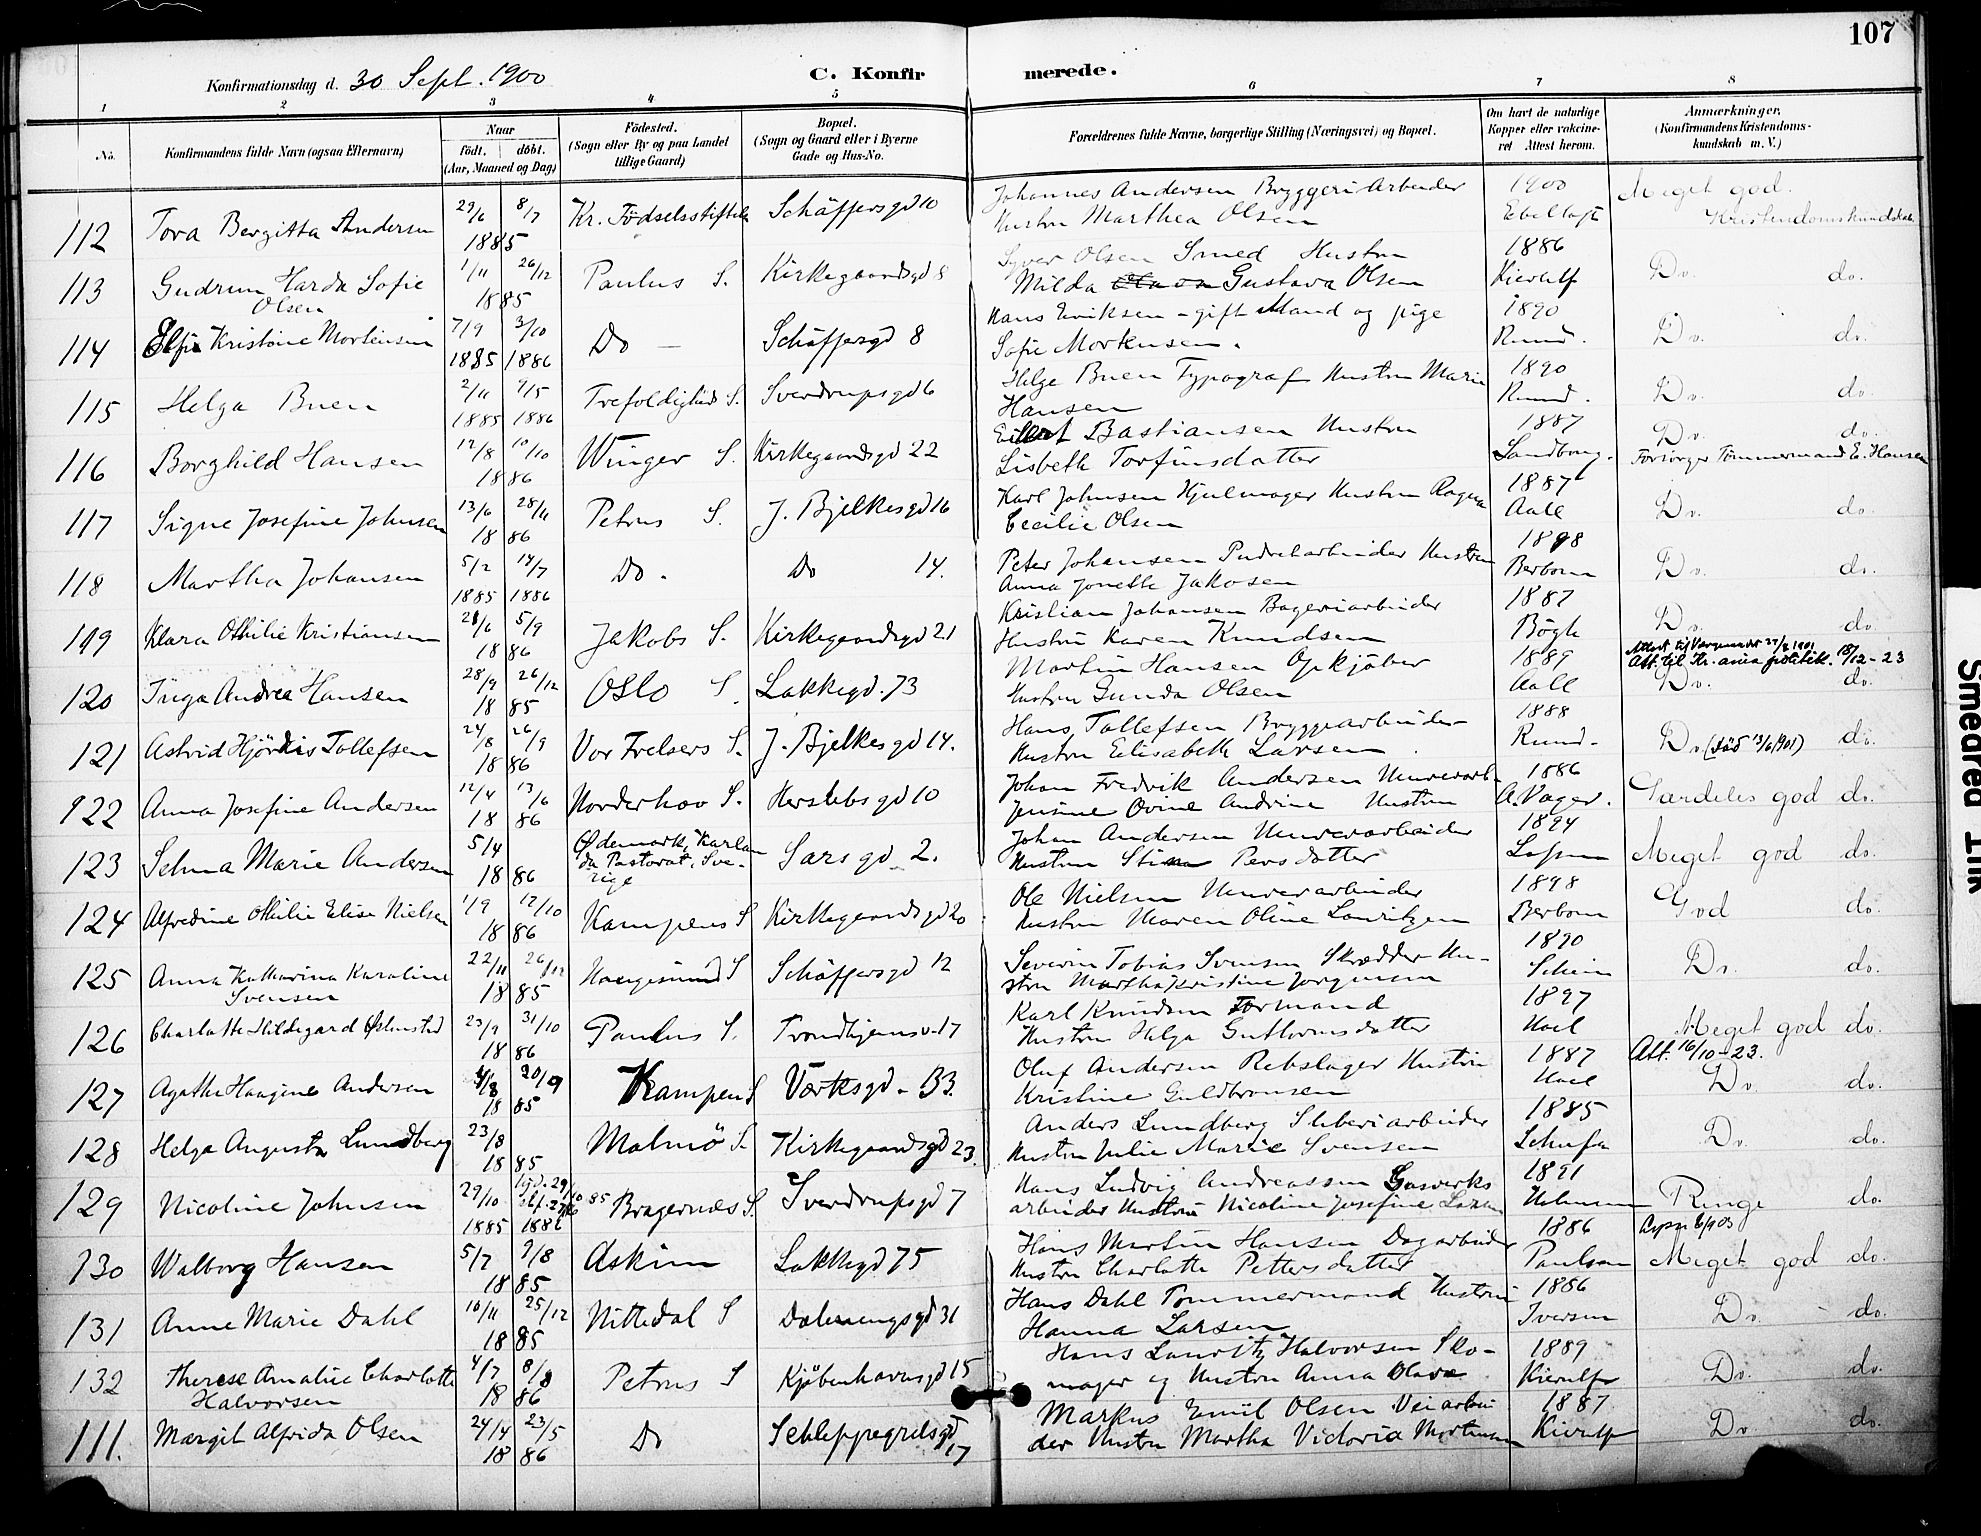 107
Konfirmationsdag d. 30 Sept. 1900
C. Konfirmerede.
1 2 3 4 5 6 7 8
No.
Konfirmandens fulde Navn (ogsaa Efternavn)
Naar
født. døbt.
(Aar, Maaned og Dag)
Fødested.
(Sogn eller By og paa Landet
tillige Gaard)
Bopæl.
(Sogn og Gaard eller i Byerne
Gade og Hus-No.
Forældrenes fulde Navne, borgerlige Stilling (Næringsvei) og Bopæl.
Om havt de naturlige
Kopper eller vakcine-
ret Attest herom.
Anmærkninger,
(Konfirmandens Kristendoms-
kundskab m. V.)
112 Tora Bergitta Andersen 29/6 8/7 1885 Kr. Fødselsstiftelse Schäffersgd 10 Johannes Andersen Bryggeri Arbeider
Hustru Marthea Olsen 1900 Meget god. Kristendomskundskab
113 Gudrun Harda Sofie
Olsen 1/11 26/12 1885 Paulus S. Kirkegaardsgd 8 Syver Olsen Smed Hustru
Milda Gustava Olsen 1886 Kierulf Do. do.
114 Kristine Mortensen 7/9 3/10 1885 1886 Do Schäffersgd 8 Hans Eriksen - gift Mand og pige
Sofie Mortensen. 1890 Ruud. Do. do.
115 Helga Buen 2/11 9/5 1885 1886 Trefoldigheds S. Sverdrupsgd 6 Helge Buen Typograf Hustru Marie
Hansen 1890 Ruud. Do. do.
116 Borghild Hansen 12/8 10/10 1886 Winger S. Kirkegaardsgd 22 Eilert Bastiansen Hustru
Lisbeth Torfinsdatter 1887 Sandberg. Do. do.
Forsørger Tømmermand E. Hansen
117 Signe Josefine Johnsen 13/6 28/11 1886 Petrus S. J. Bjelkesgd 16 Karl Johnsen Hjulmager Hustru Ragna
Cecilie Olsen 1887 Aall Do. do.
118 Martha Johansen 5/2 14/7 1885 1886 Do. Do 14. Peter Johansen Pudretarbeider Hustru
Anna Jonette Jakosen 1898 Berbom Do. do.
119 Klara Othilie Kristiansen 21/6 5/9 1886 Jakobs S. Kirkegaardsgd 21 Kristian Johansen Bageriarbeider
Hustru Karen Knudsen 1887 Bøgh Do. do.
120 Inga Andrea Hansen 28/9 26/12 1885 Oslo S. Lakkegd. 73 Martin Hansen Opkjøber
Hustru Gunda Olsen 1889 Aall Att. til Kr.ania politik. 18/12-23
Do. do.
121 Astrid Hjördis Tollefsen 24/8 26/9 1886 Vor Frelsers S. J. Bjelkesgd 14. Hans Tollefsen Bryggearbeider
Hustru Elisabeth Larsen 1888 Ruud. Do. (död 13/6 1901) do.
122 Anna Josefine Andersen 12/4 13/6 1886 Norderhov S. Herslebsgd 10 Johan Fredrik Andersen Murerarb.
Jensine Ovine Andrine Hustru 1886 A. Vager. Særdeles god do.
123 Selma Marie Andersen 5/4 1886 Ødemark, Karlan-
da Pastorat, Sve-
rige Sarsgd 2. Johan Andersen Murerarbeider
Hustru Stina Persdatter 1894 Meget god do.
124 Alfredine Othilie Elise Nielsen 1/9 17/10 1886 Kampens S Kirkegaardsgd 20 Ole Nielsen Murerarbeider
Hustru Maren Oline Lauritzen 1898 Berbom God do.
125 Anna Katharina Karoline
Svensen 22/11 26/12 1885 Haugesund S Schäffersgd 12 Severin Tobias Svensen Skrædder Hu-
stru Martha Kristine Jørgensen 1890 Do. do.
126 Charlotte Hildegard Ødmstad 23/9 31/10 1886 Paulus S. Trondhjemsv. 17 Karl Knudsen Formand
Hustru Helga Guttormsdatter 1897 Meget god do.
127 Agathe Haagine Andersen 4/8 20/9 1885 Kampen S Værksgd. B3. Oluf Andersen Rebslager Hustru
Kristine Guldbransen 1887 Att. 16/10-23.
Do. do.
128 Helga Augusta Lundberg 23/8 1885 Malmö S. Kirkegaardsgd 23. Anders Lundberg Støberiarbeider
Hustru Julie Marie Svensen 1885 Do. do.
129 Nicoline Johnsen 29/10 1885 1886 Bragernæs S. Sverdrupsgd 7 Hans Ludvig Andreassen Gasverks
arbeider Hustru Nicoline Josefine Larsen 1891 Ringe do.
130 Walborg Hansen 5/7 9/8 1885 Askim Lakkegd 75 Hans Martin Hansen Dagarbeider
Hustru Charlotte Pettersdatter 1886 Paulsen Meget god do.
131 Anne Marie Dahl 10/11 25/12 1885 Nittedal S Dælenengsgd 31 Hans Dahl Tømmermand Hustru
Hanna Larsen 1886 Iversen Do. do.
132 Therese Amalie Charlotte
Halvorsen 4/7 8/8 1886 Petrus S Kjøbenhavnsgd 15 Hans Lauritz Halvorsen Sko-
mager og Hustru Anna Olava 1889 Kierulf Do. do.
111. Margit Alfrida Olsen 24/4 23/5 1886 Do Schleppegrelsgd
17 Markus Emil Olsen Veiarbei-
der Hustru Martha Victoria Mortensen 1887 Kierulf Do. do.
Smeared Ink